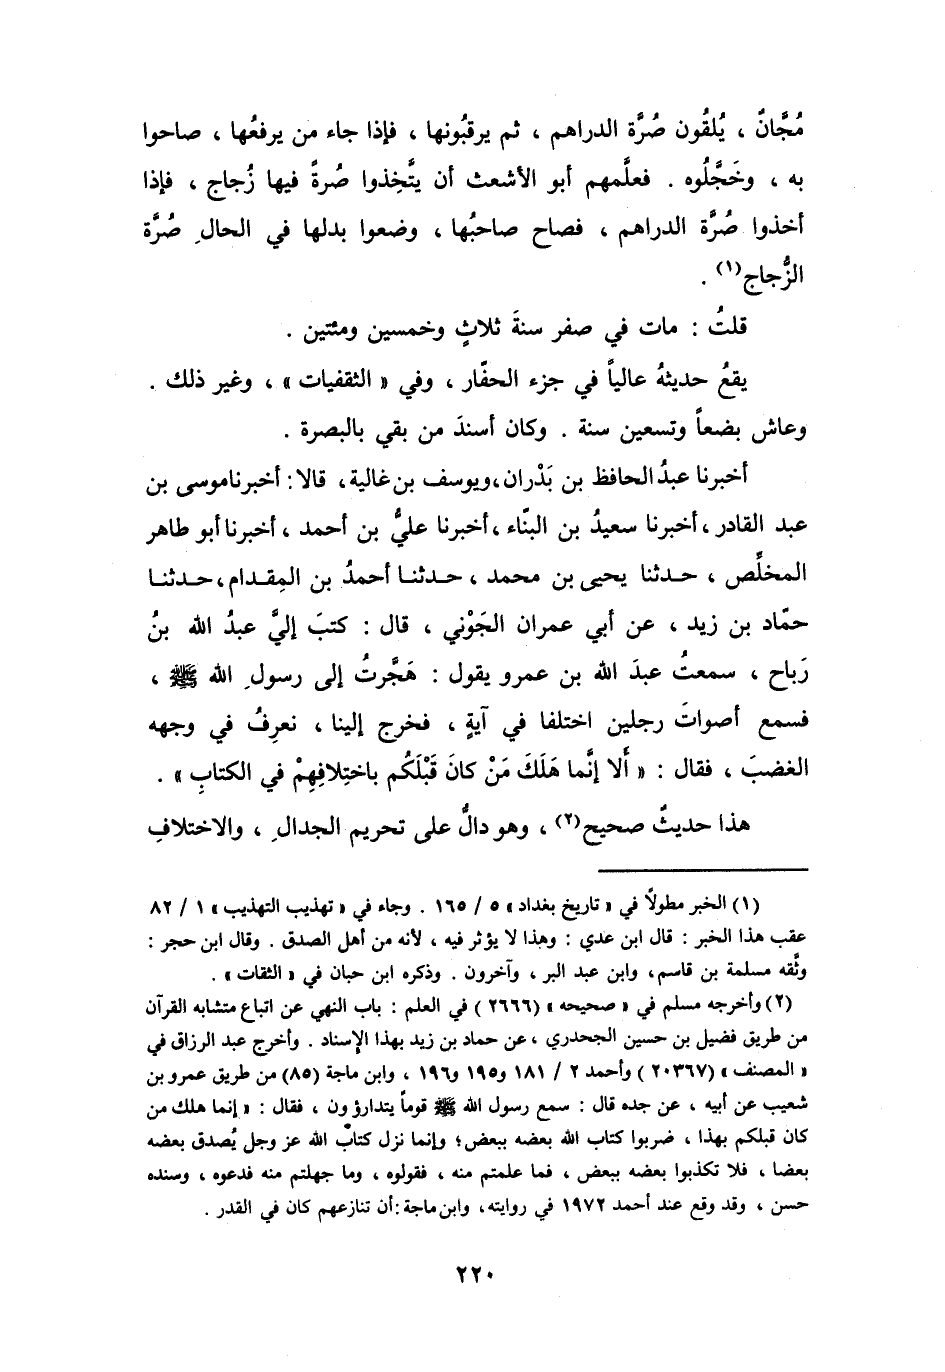 مُجَّانٌ ، يُلقُون صُرَّة الدراهم ، ثم يرقبُونها ، فإذا جاء من يرفعُها ، صاحوا
به ، وخَجَّلُوه . فعلَّمهم أبو الأشعث أن يتَّخِذوا صُرةً فيها زُجاج ، فإذا
أخذوا صُرَّة الدراهم ، فصاح صاحبُها ، وضعوا بدلها في الحالِ صُرَّة
الزُّجاج(١) .
قلتُ : مات في صفر سنةَ ثلاثٍ وخمسين ومئتين .
يقعُ حديثهُ عالياً في جزء الحفّار ، وفي « الثقفيات » ، وغير ذلك .
وعاش بضعاً وتسعين سنة . وكان أسندَ من بقي بالبصرة .
أخبرنا عبدُ الحافظ بن بَدْران، ويوسف بن غالية ، قالا : أخبرنا موسى بن
عبد القادر ، أخبرنا سعيدُ بن البنّاء ، أخبرنا عليُّ بن أحمد ، أخبرنا أبو طاهر
المخلِّص ، حدثنا يحيى بن محمد ، حدثنا أحمدُ بن المِقدام ، حدثنا
حمّاد بن زيد ، عن أبي عمران الجَوْني ، قال : كتبَ إليَّ عبدُ الله بنُ
رَباح ، سمعتُ عبدَ الله بن عمرو يقول : هَجَّرتُ إلى رسولِ الله ﷺ ،
فسمع أصواتَ رجلين اختلفا في آيةٍ ، فخرج إلينا ، نعرِفُ في وجهه
الغضبَ ، فقال : « أَلا إنَّما هَلَكَ مَنْ كانَ قَبْلَكُم باختِلافِهِمْ في الكتابِ » .
هذا حديثٌ صحيح(٢) ، وهو دالٌّ على تحريم الجدالِ ، والاختلافِ
(١) الخبر مطولاً في « تاريخ بغداد » ٥ / ١٦٥ . وجاء في « تهذيب التهذيب » ١ / ٨٢
عقب هذا الخبر : قال ابن عدي : وهذا لا يؤثر فيه ، لأنه من أهل الصدق . وقال ابن حجر :
وثَّقه مسلمة بن قاسم، وابن عبد البر ، وآخرون . وذكره ابن حبان في « الثقات » .
(٢) وأخرجه مسلم في « صحيحه » (٢٦٦٦) في العلم : باب النهي عن اتباع متشابه القرآن
من طريق فضيل بن حسين الجحدري ، عن حماد بن زيد بهذا الإسناد . وأخرج عبد الرزاق في
« المصنف » (٢٠٣٦٧) وأحمد ٢ / ١٨١ و١٩٥ و١٩٦ ، وابن ماجة (٨٥) من طريق عمرو بن
شعيب عن أبيه ، عن جده قال : سمع رسول الله ﷺ قوماً يتدارؤ ون ، فقال : « إنما هلك من
كان قبلكم بهذا ، ضربوا كتاب الله بعضه ببعض؛ وإنما نزل كتابُ الله عز وجل يُصدق بعضه
بعضا ، فلا تكذبوا بعضه ببعض ، فما علمتم منه ، فقولوه ، وما جهلتم منه فدعوه ، وسنده
حسن ، وقد وقع عند أحمد ١٩٧٢ في روايته، وابن ماجة : أن تنازعهم كان في القدر .
٢٢٠